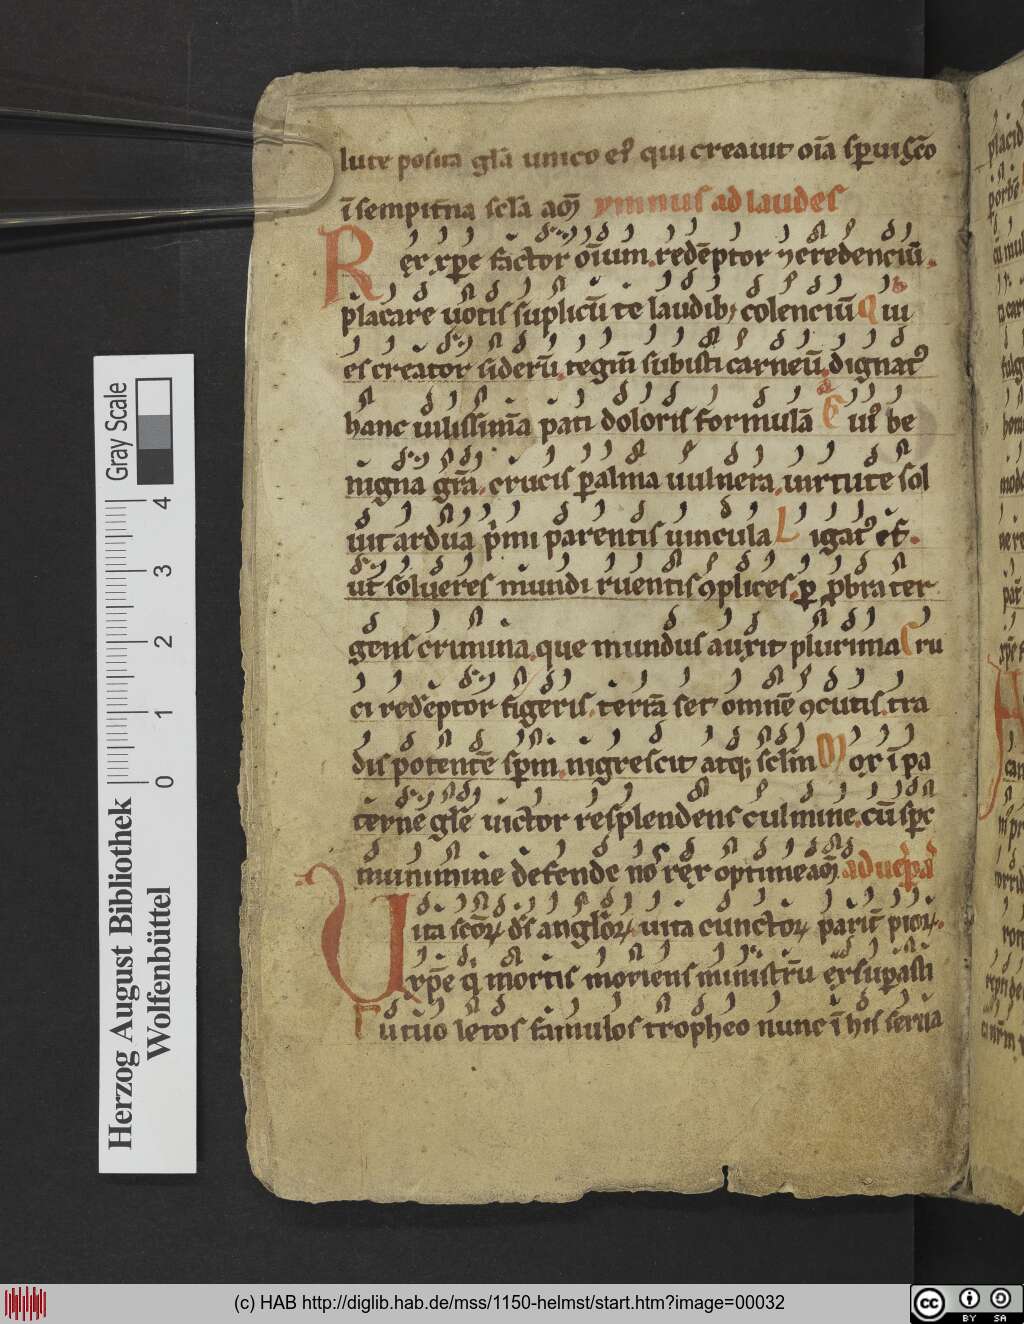 lute posita gl̄a unico eiꝰ qui creauit oīa sp̄ui sc̄o
ī sempit̄na sc̄la am̄ ymnus ad laudes
Rex xp̄e factor oīum. redēptor ⁊ credenciū.
placare uotis suplicū te laudibꝫ colenciū Qui
es creator siderū. tegm̄ subisti carneū. dignatꝰ
hanc uilissimā pati doloris formulā Cuiꝰ be
nigna gr̄a. crucis ꝑ alma uulnera. uirtute sol
uit ardua p̄mi parentis uincula Ligatꝰ es.
ut solueres mundi ruentis ꝯplices. ꝑ ꝓbra ter
gens crimina. que mundus auxit plurima Cru
ci redēptor figeris. terrā set omnē ꝯcutis. tra
dis potentē sp̄m. nigrescit atqꝫ sclm̄ Mox ī pa
terne gl̄e uictor resplendens culmine. cū sp̄c
munimine defende nos rex optime am̄ ad uesp̄a
Uita sc̄oꝝ ds̄ angl̄oꝝ. uita cunctoꝝ parit̄ pioꝝ.
xp̄e q̄ mortis moriens ministrū exsupasti
Tu tuo letos famulos tropheo nunc ī his serua
placid
portē
Gray Scale
4
3
2
1
0
Herzog August Bibliothek
Wolfenbüttel
(c) HAB http://diglib.hab.de/mss/1150-helmst/start.htm?image=00032
cc
BY SA